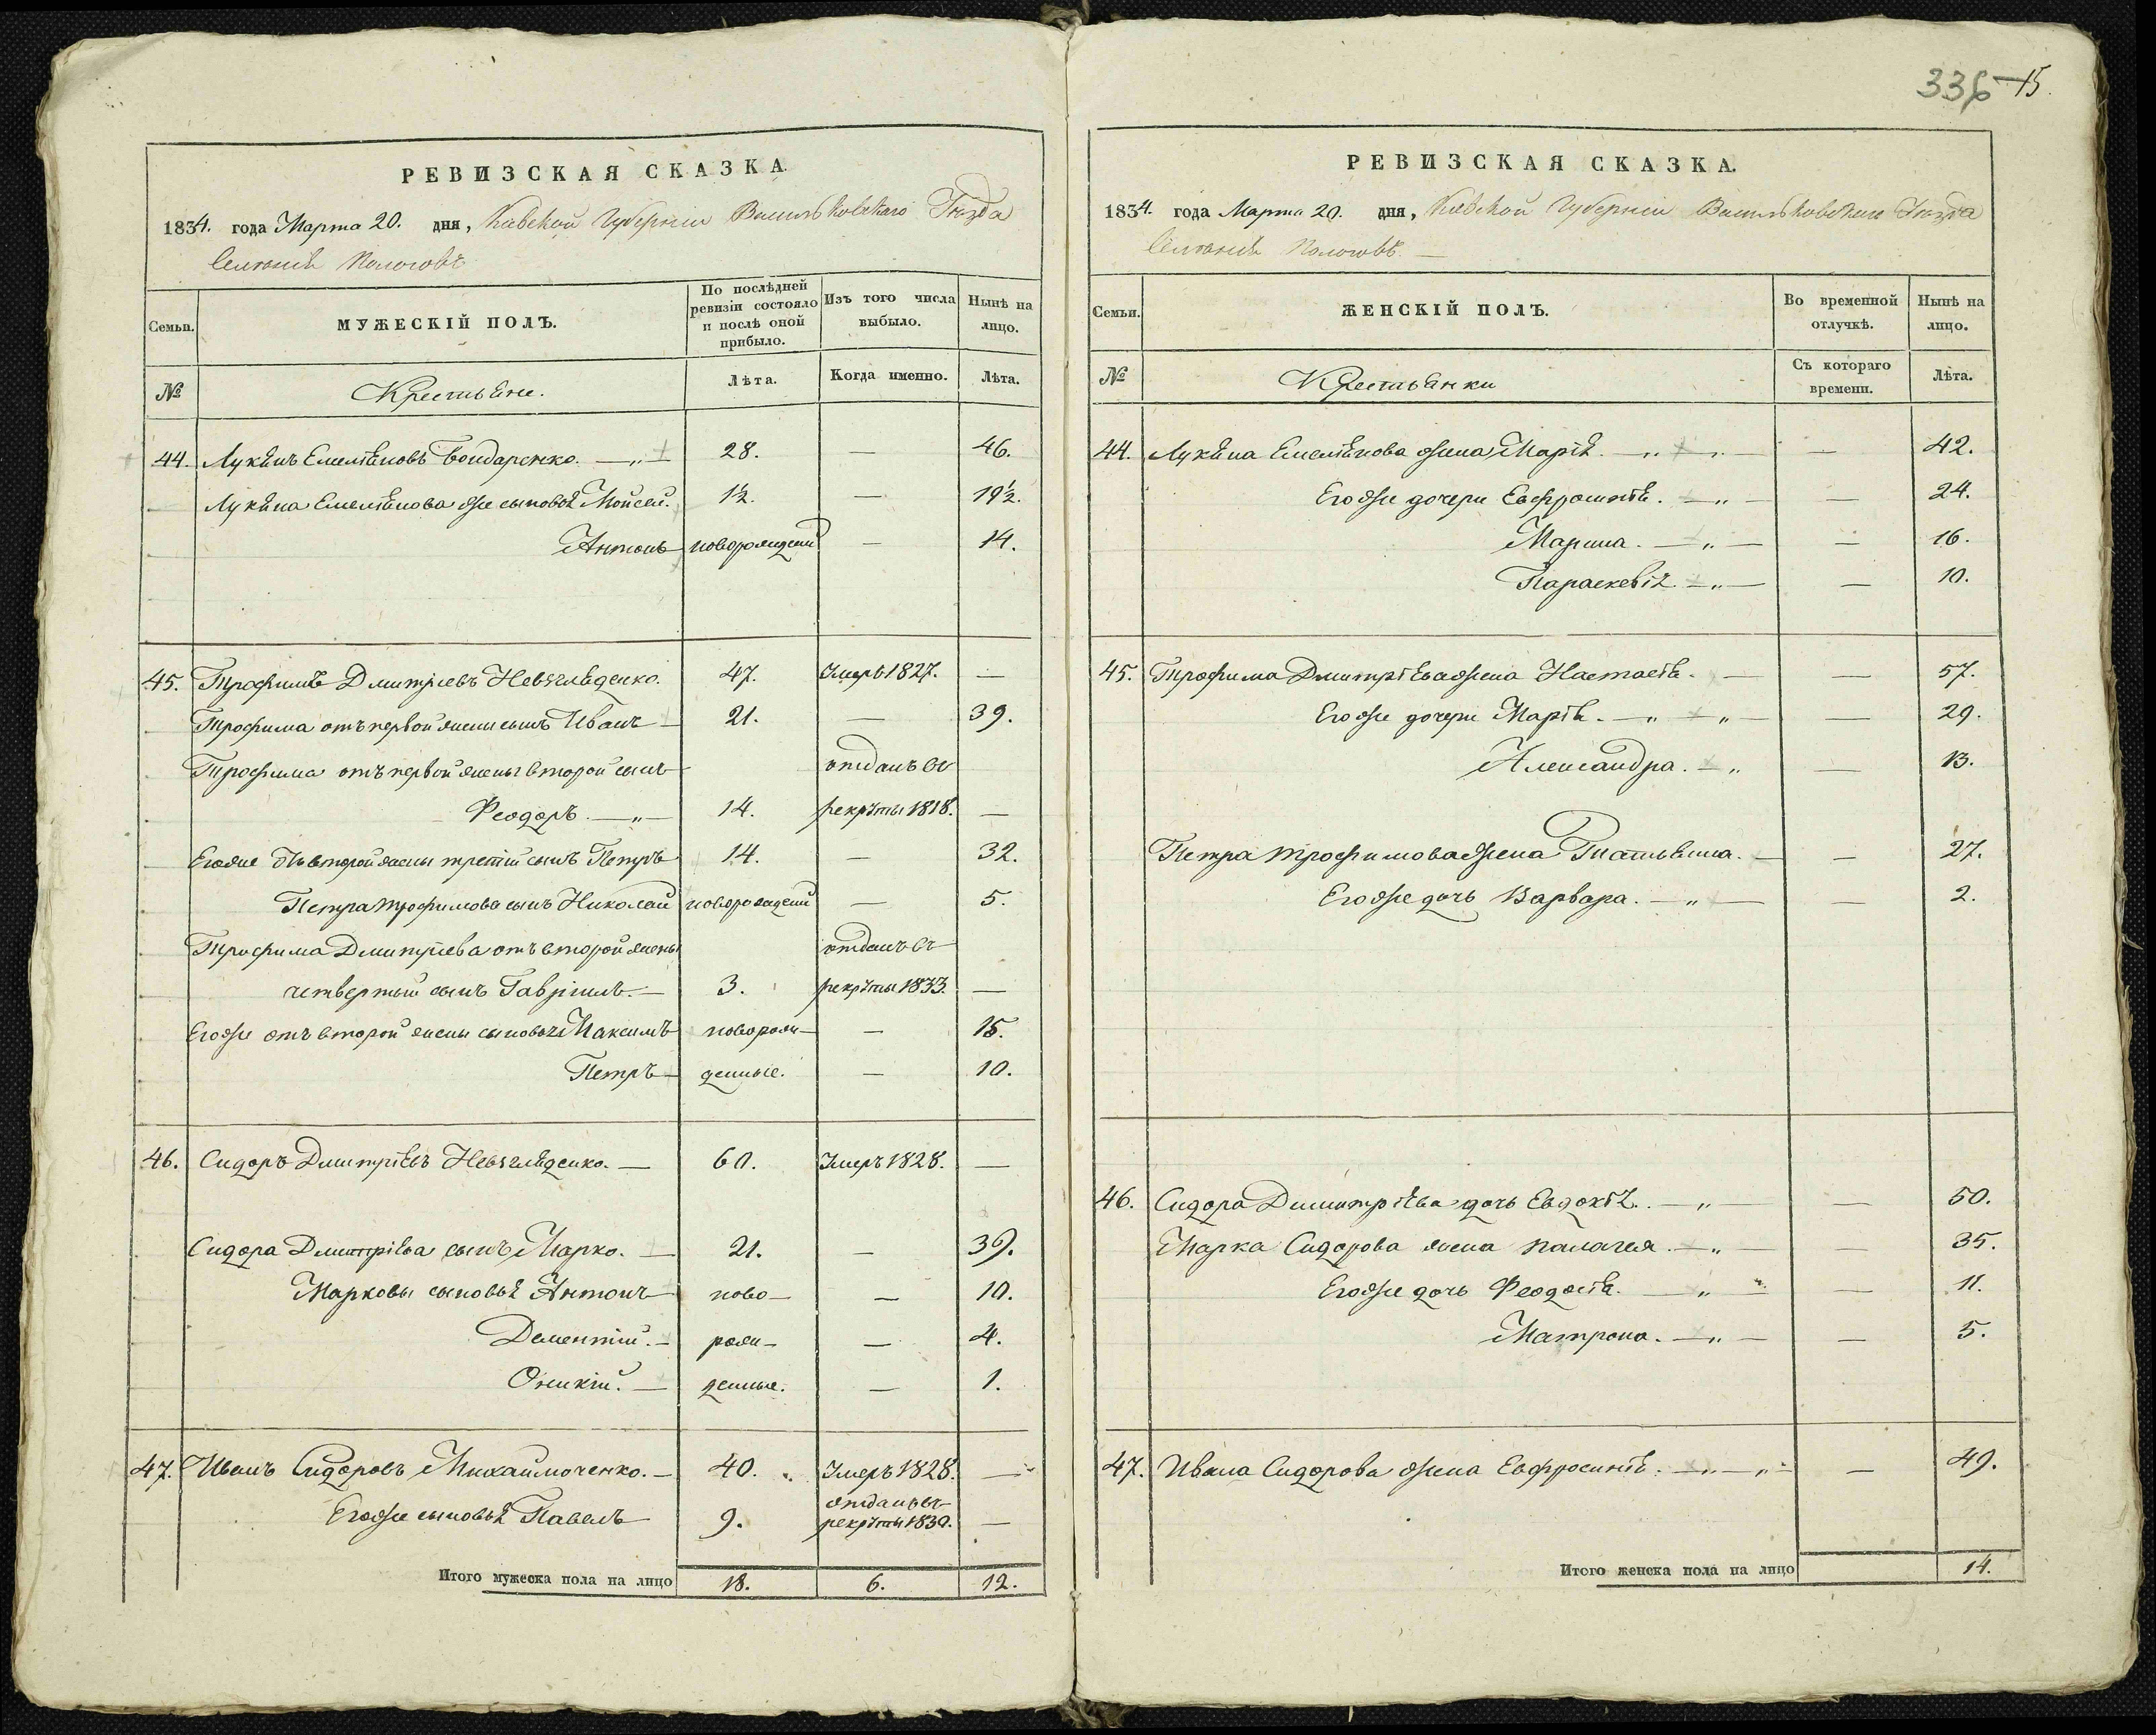 336 15.
РЕВИЗСКАЯ СКАЗКА.
1834. года Марта 20. дня, Кіевской Губерніи Васильковскаго Уѣзда
Селенія Пологовъ
Семьи. МУЖЕСКІЙ ПОЛЪ. По послѣдней ревизіи состояло и послѣ оной прибыло. Изъ того числа выбыло. Нынѣ на лицо.
№ Крестьяне. Лѣта. Когда именно. Лѣта.
44. Лукьянъ Емельяновъ Бондаренко. — „ — 28. — 46.
Лукьяна Емельянова же сыновья Мойсей. 1½. — 19½.
Антонъ новорожденый — 14.
45. Трофимъ Дмитріевъ Невгляденко. 47. Умеръ 1827. —
Трофима отъ первой жены сынъ Иванъ — 21. — 39.
Трофима отъ первой жены второй сынъ отданъ въ
Феодоръ. — „ — 14. рекруты 1818. —
Егоже отъ второй жены третій сынъ Петръ 14. — 32.
Петра Трофимова сынъ Николай новорожденый — 5.
Трофима Дмитріева отъ второй жены отданъ въ
четвертый сынъ Гавріилъ. — 3. рекруты 1833. —
Егоже отъ второй жены сыновья Максимъ новорож- — 15.
Петръ — денные. — 10.
46. Сидоръ Дмитріевъ Невгляденко. — 60. Умеръ 1828. —
Сидора Дмитріева сынъ Марко. — 21. — 39.
Марковы сыновья Антонъ ново- — 10.
Дементій. — рож- — 4.
Оникій. — денные. — 1.
47. Иванъ Сидоровъ Михаймоченко. — 40. Умеръ 1828. —
Егоже сыновья Павелъ 9. отданъ въ рекруты 1830. —
Итого мужеска пола на лицо 18. 6. 12.
РЕВИЗСКАЯ СКАЗКА.
1834. года Марта 20. дня, Кіевской Губерніи Васильковскаго Уѣзда
Селенія Пологовъ. —
Семьи. ЖЕНСКІЙ ПОЛЪ. Во временной отлучкѣ. Нынѣ на лицо.
№ Крестьянки Съ котораго времени. Лѣта.
44. Лукьяна Емельянова жена Марія. — „ — — 42.
Егоже дочери Евфросинія. — „ — — 24.
Марина. — „ — — 16.
Параскевія — „ — — 10.
45. Трофима Дмитріева жена Настасія. — — 57.
Егоже дочери Марія. — „ — „ — — 29.
Александра. — „ — 13.
Петра Трофимова жена Татьянна. — — 27.
Егоже дочь Варвара. — „ — — 2.
46. Сидора Димитріева дочь Евдокія. — „ — — 50.
Марка Сидорова жена Палагея. — „ — 35.
Егоже дочь Феодосія. — „ — — 11.
Матрона. — „ — — 5.
47. Ивана Сидорова жена Евфросинія. — „ — „ — — 49.
Итого женска пола на лицо 14.